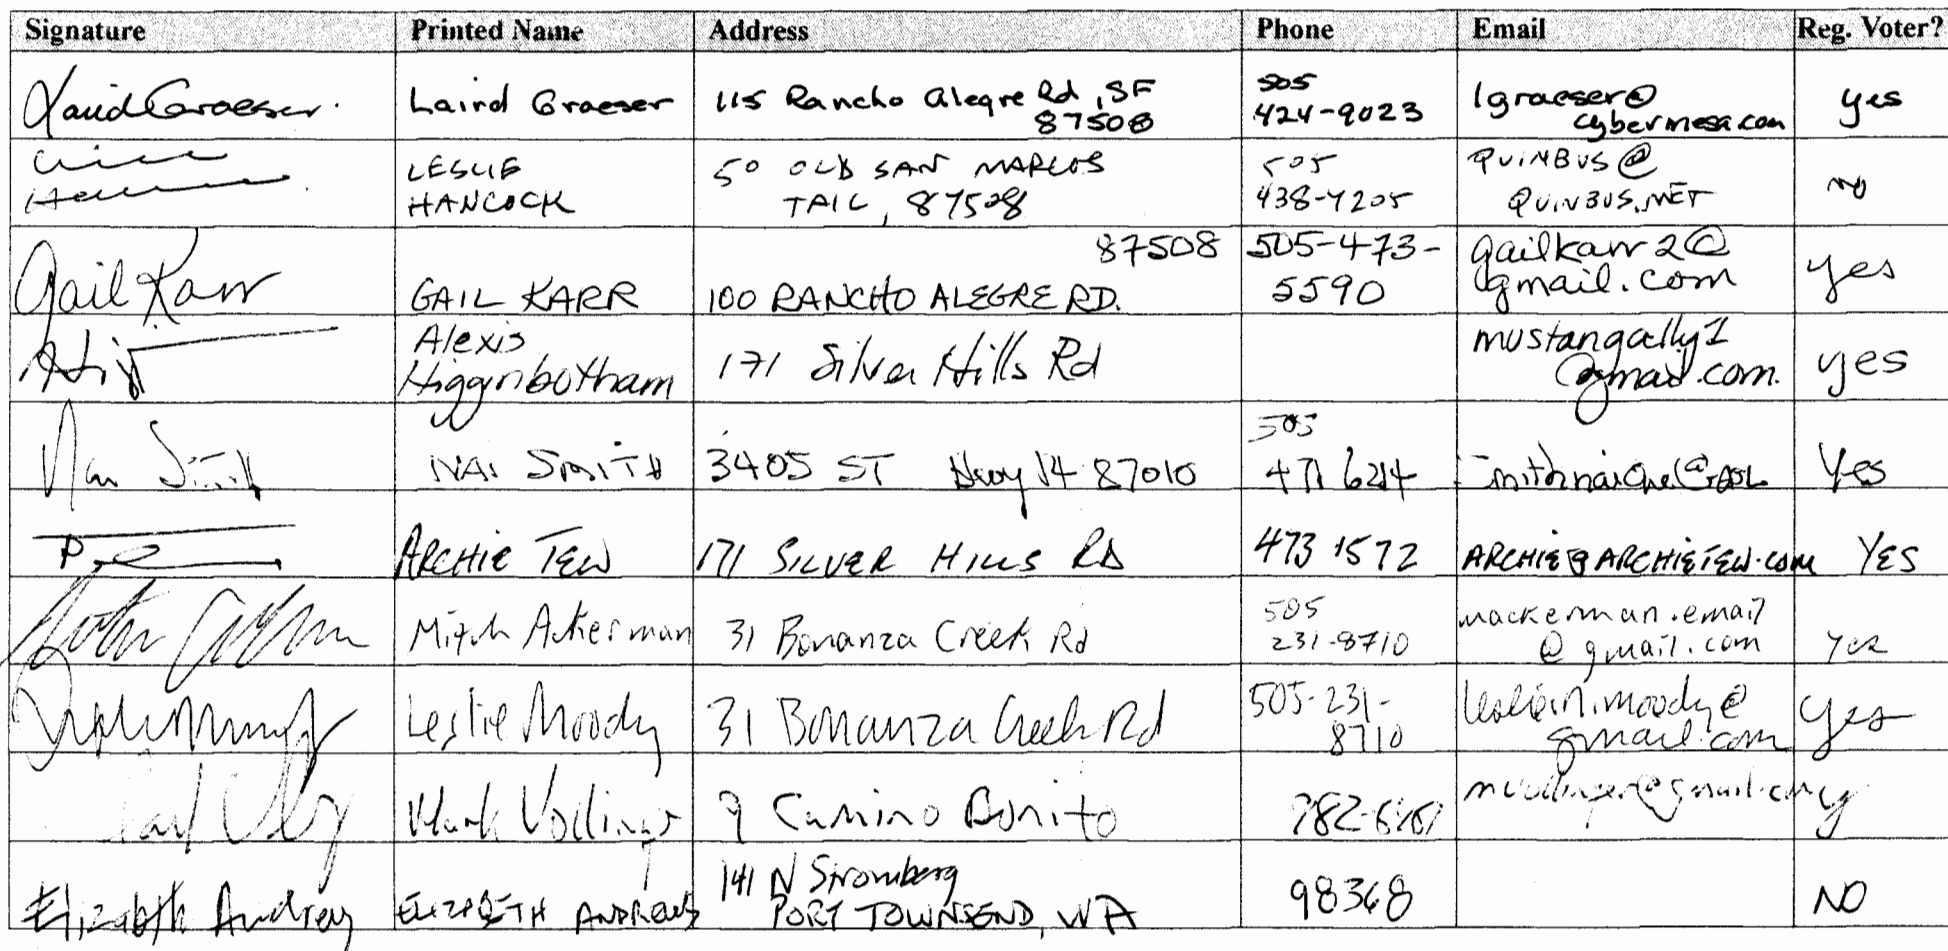 Signature Printed Name Address Phone Email Reg. Voter?
Laird Graeser Laird Graeser 115 Rancho Alegre Rd, SF 87508 505 424-9023 lgraeser@ cybermesa.com yes
LESLIE HANCOCK 50 OLD SAN MARCOS TAIL, 87508 505 438-4205 QUINBUS@ QUINBUS.NET no
Gail Karr GAIL KARR 100 RANCHO ALEGRE RD. 87508 505-473-5590 gailkarr2@ gmail.com yes
Alexis Higginbotham 171 Silver Hills Rd mustangally1 @gmail.com. yes
Smith NAI SMITH 3405 ST Hwy 14 87010 505 Yes
ARCHIE TEW 171 SILVER HILLS RD 473 1572 ARCHIE@ARCHIETEW.COM YES
Mitch Ackerman 31 Bonanza Creek Rd 505 231-8710 mackerman.email @gmail.com yes
Leslie Moody 31 Bonanza Creek Rd 505-231-8710 gmail.com yes
Mark 9 Camino Bonito y
Elizabeth Andrews ELIZABETH ANDREWS 141 N Stromberg PORT TOWNSEND, WA 98368 NO